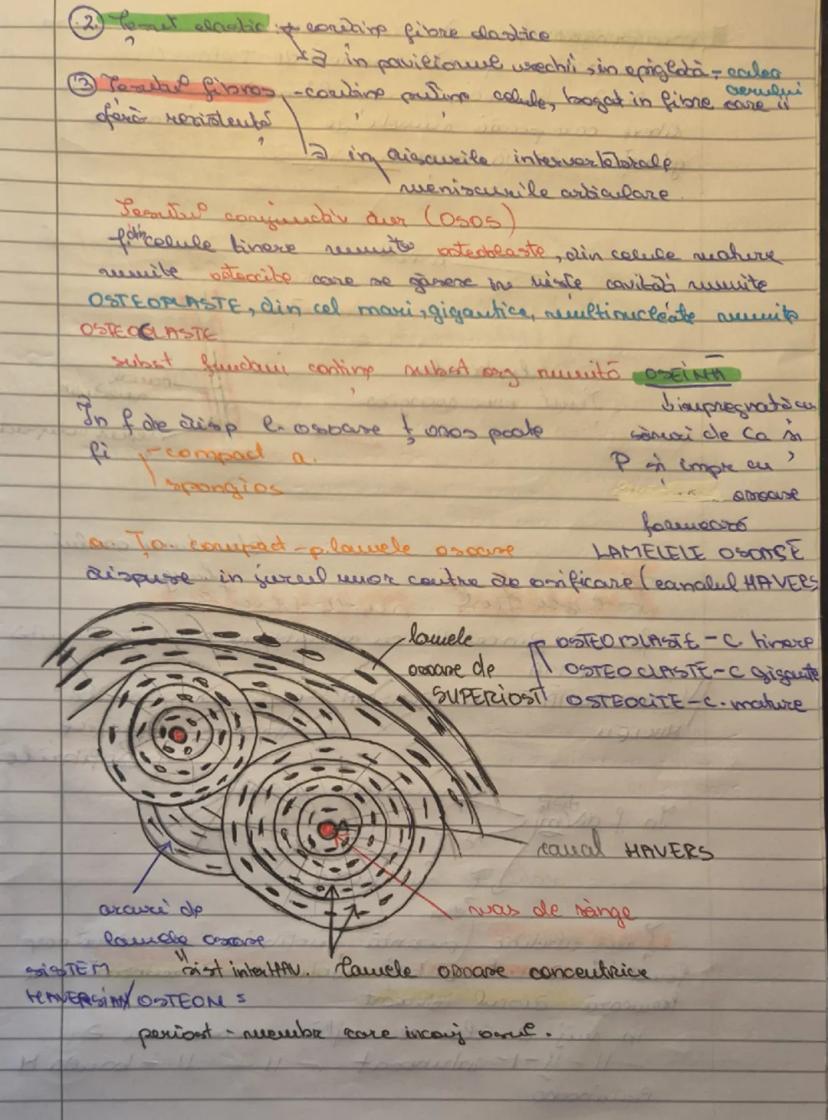 2) Țesut elastic: → conține fibre elastice
→ în pavilionul urechii și în epiglotă = calea
aerului
3) Țesutul fibros - conține puține celule, bogat în fibre care îi
oferă rezistență
→ în discurile intervertebrale
meniscurile articulare
Țesutul conjunctiv dur (OSOS)
f. din celule tinere numite osteoblaste, din celule mature
numite osteocite care se găsesc în niște cavități numite
OSTEOPLASTE, din cel mari, gigantice, multinucleate numite
OSTEOCLASTE
subst fundam conține subst org numită OSEINĂ
impregnată cu
În f de disp l. osoase ț osos poate
săruri de Ca și
fi - compact a.
P și împr cu
spongios
osoase
formează
a. Țo. compact - p. lamele osoase
LAMELELE OSOASE
dispuse în jurul unor centre de osificare (canalul HAVERS
lamele
osoase de
SUPERIOST
OSTEOBLASTE - C. tinere
OSTEOCLASTE - C gigante
OSTEOCITE - C. mature
canal HAVERS
vas de sânge
arcuri de
lamele osoase
sist interHAV.
lamele osoase concentrice
SISTEM
HAVERSIAN/OSTEON:
periost - membr care înconj osul.